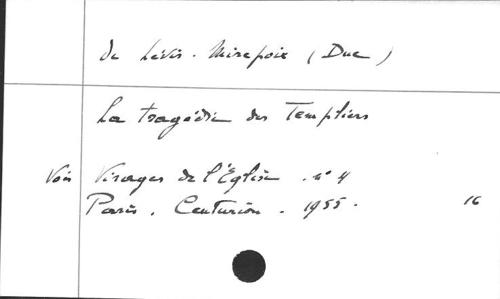 de Lévis-Mirepoix (Duc)
La tragédie des Templiers
Voir Visages de l'Église. n° 4
Paris. Centurion. 1955. 16